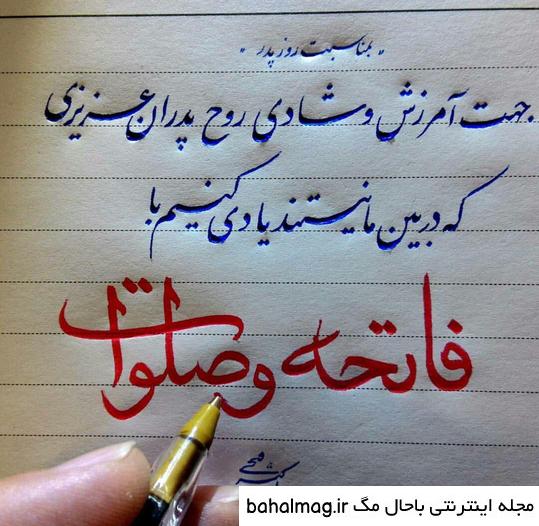 "بمناسبت روز پدر"
جهت آمرزش و شادی روح پدران عزیزی
که در بین ما نیستند یادی کنیم با
فاتحه و صلوات
مجله اینترنتی باحال مگ bahalmag.ir